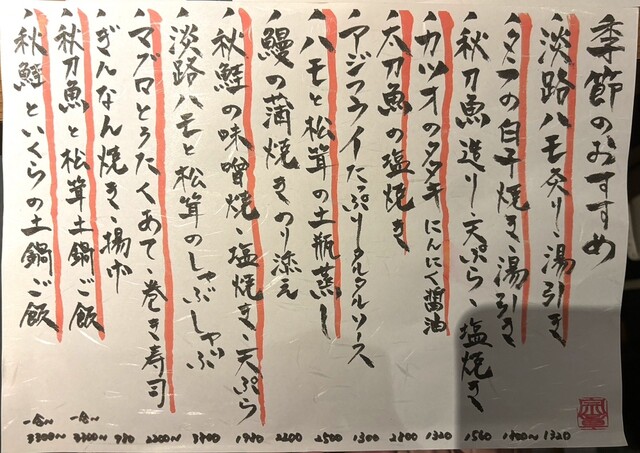 季節のおすすめ
・淡路ハモ炙り、湯引き
・タラの白子焼き、湯引き
・秋刀魚造り、天ぷら、塩焼き
・カツオのタタキ にんにく醤油
・太刀魚の塩焼き
・アジフライたっぷりタルタルソース
・ハモと松茸の土瓶蒸し
・鰻の蒲焼きのり添え
・秋鮭の味噌焼、塩焼き、天ぷら
・淡路ハモと松茸のしゃぶしゃぶ
・マグロとうたくあて、巻き寿司
・ぎんなん焼き、揚げ
・秋刀魚と松茸土鍋ご飯
・秋鮭といくらの土鍋ご飯
1320
1400〜
1560
1320
2800
1300
2500
2200
1980
3800
2200〜
980
一合〜
3300〜
一合〜
3300〜